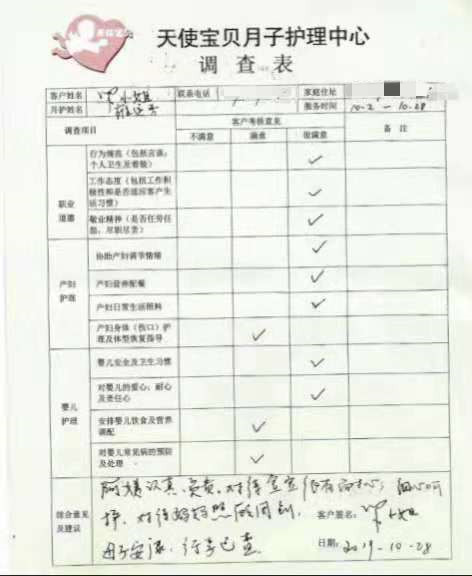 天使宝贝
天使宝贝月子护理中心
调查表
客户姓名 小姐 联系电话 家庭住址
月护姓名 服务时间 10-2 — 10-28
调查项目 客户考核意见 备注
不满意 满意 很满意
职业道德
行为规范（包括言谈，个人卫生及着装） ✓
工作态度（包括工作积极性和是否适应客户生活习惯） ✓
敬业精神（是否任劳任怨，尽职尽责） ✓
产妇护理
协助产妇调节情绪 ✓
产妇营养配餐 ✓
产妇日常生活照料 ✓
产妇身体（伤口）护理及体型恢复指导 ✓
婴儿护理
婴儿安全及卫生习惯 ✓
对婴儿的爱心，耐心及责任心 ✓
安排婴儿饮食及营养调配 ✓
对婴儿常见病的预防及处理 ✓
综合意见及建议
阿姨认真、负责，对待宝宝很有耐心，细心呵
护，对待 照顾周到，
母子安康，
客户签名： 小姐
日期：2019-10-28